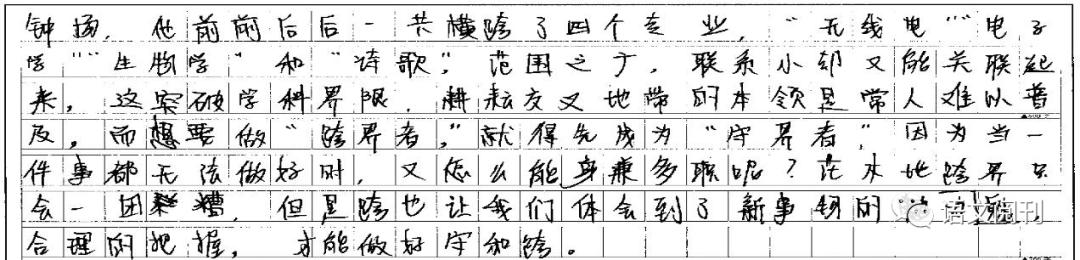 钟扬,他前前后后一共横跨了四个专业,“无线电”“电子
学”“生物学”和“诗歌”,范围之广,联系小却又能关联起
来,这突破学科界限,耕耘交叉地带的本领是常人难以普
及,而想要做“跨界者,”就得先成为“守界者”,因为当一
件事都无法做好时,又怎么能身兼多职呢?茫木地跨界只
会一团糟,但是跨也让我们体会到了新事物的
合理的把握,才能做好守和跨。
语文阅刊